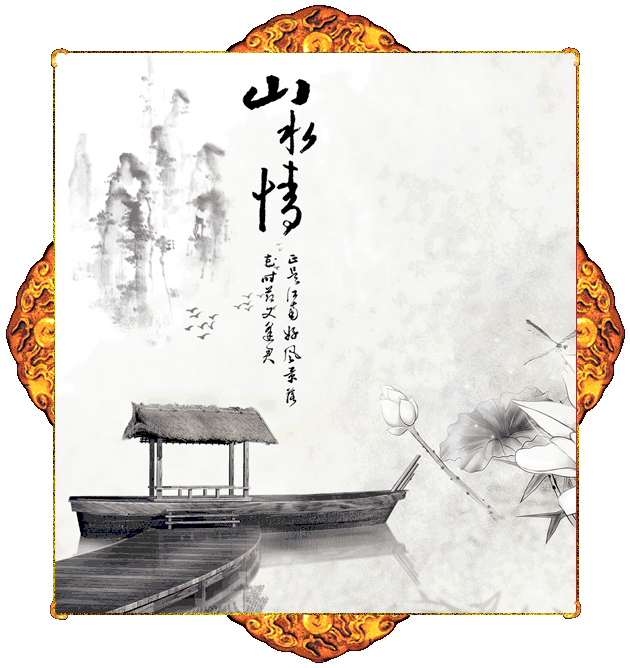 山水情
正是江南好风景落
花时节又逢君